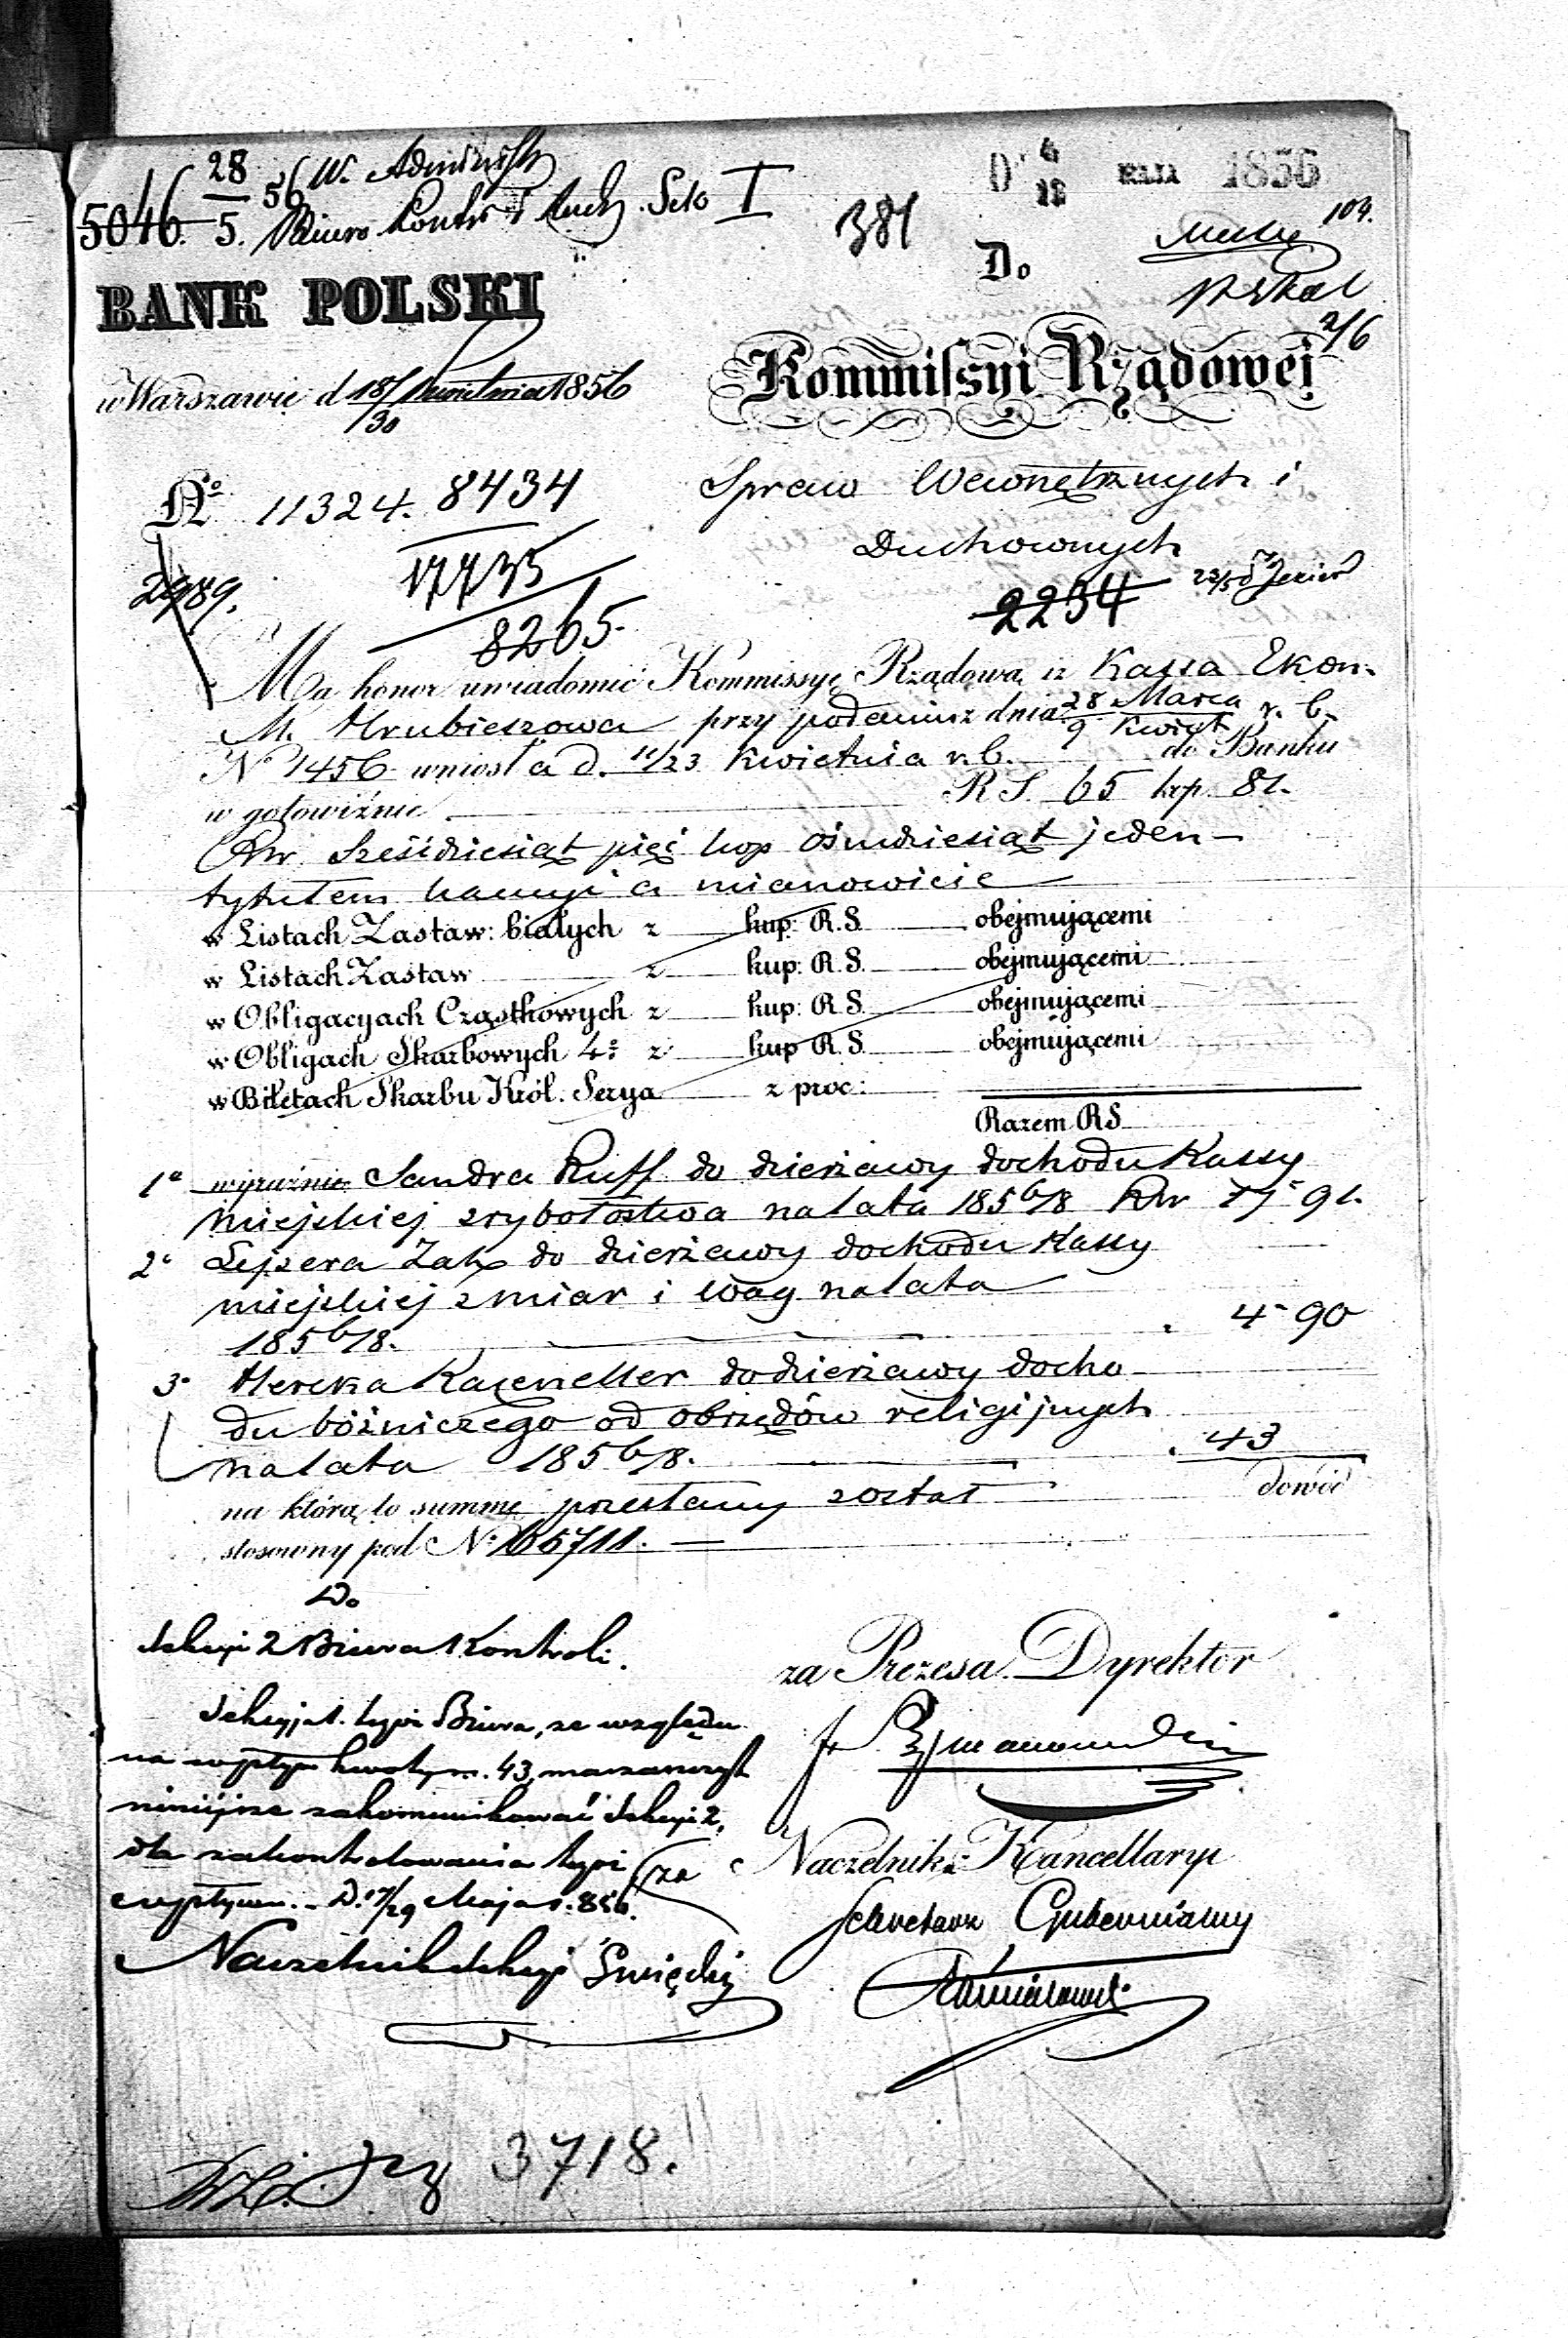 5046. 28/5. 56 W. Administ
Biuro Kontr i Rach. Sekc I
381
D. 4/12 MAJA 1856
109.
Do
2/6
BANK POLSKI
w Warszawie d 18/30 Kwietnia 1856
Kommissyi Rządowej
Spraw Wewnętrznych i
Duchownych
No 11324. 8434
17735
8265.
2989.
2234
23/5
Ma honor uwiadomić Kommissyę Rządową iż Kassa Ekon.
M. Hrubieszowa przy podaniu z dnia 28 Marca / 9 Kwiet. r. b.
No 1456 wniosła d. 11/23 Kwietnia r. b. do Banku
w gotowiźnie RS. 65 kop. 81.
Rsr. Sześćdziesiąt pięć kop ośmdziesiąt jeden
tytułem kaucyi a mianowicie
w Listach Zastaw: białych z kup: R.S. obejmującemi
w Listach Zastaw z kup: R.S. obejmującemi
w Obligacyach Cząstkowych z kup: R.S. obejmującemi
w Obligach Skarbowych 4% z kup R.S. obejmującemi
w Biletach Skarbu Król. Serya z proc:
Razem RS
1o wyraźnie Sandra Ruff do dzierżawy dochodu Kassy
miejskiej z rybołóstwa na lata 1856/8 Rsr 17 91.
2o Lejzera Zak do dzierżawy dochodu Kassy
miejskiej z miar i wag na lata
1856/8. " 4 90
3o Hercka Kaceneller do dzierżawy docho
du bóżniczego od obrzędów religijnych
na lata 1856/8. " 43
na którą to summę przesłany został dowód
stosowny pod No 65711.
Do
Sekcyi 2 Biura Kontroli.
za Prezesa Dyrektor
Sekcyja 1. tegoż Biura, ze względu
na wpływ kwoty rs. 43, ma zaszczyt
niniejsze zakomunikować Sekcyi 2,
dla zakontrolowania tegoż
wpływu. D. 17/29 Maja r. 856.
za Naczelnika Kancellaryi
Sekretarz Gubernialny
Naczelnik Sekcyi Święcki
3718.